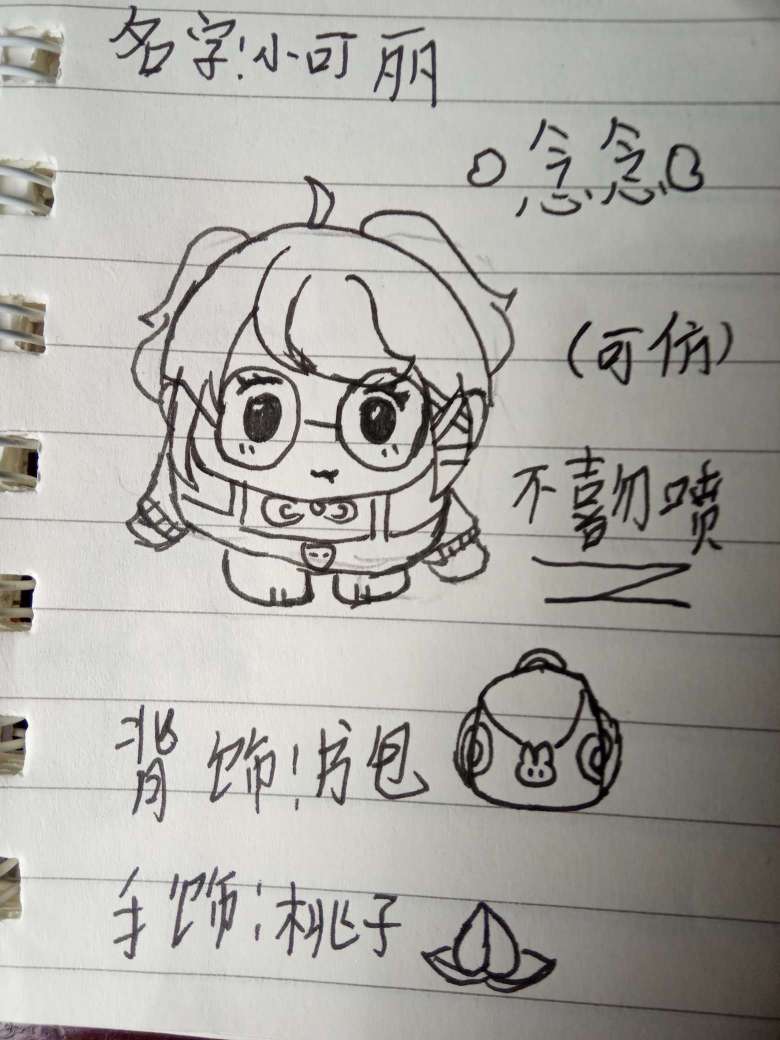 名字:小可丽
念念
(可仿)
不喜勿喷
背饰:书包
手饰:桃子